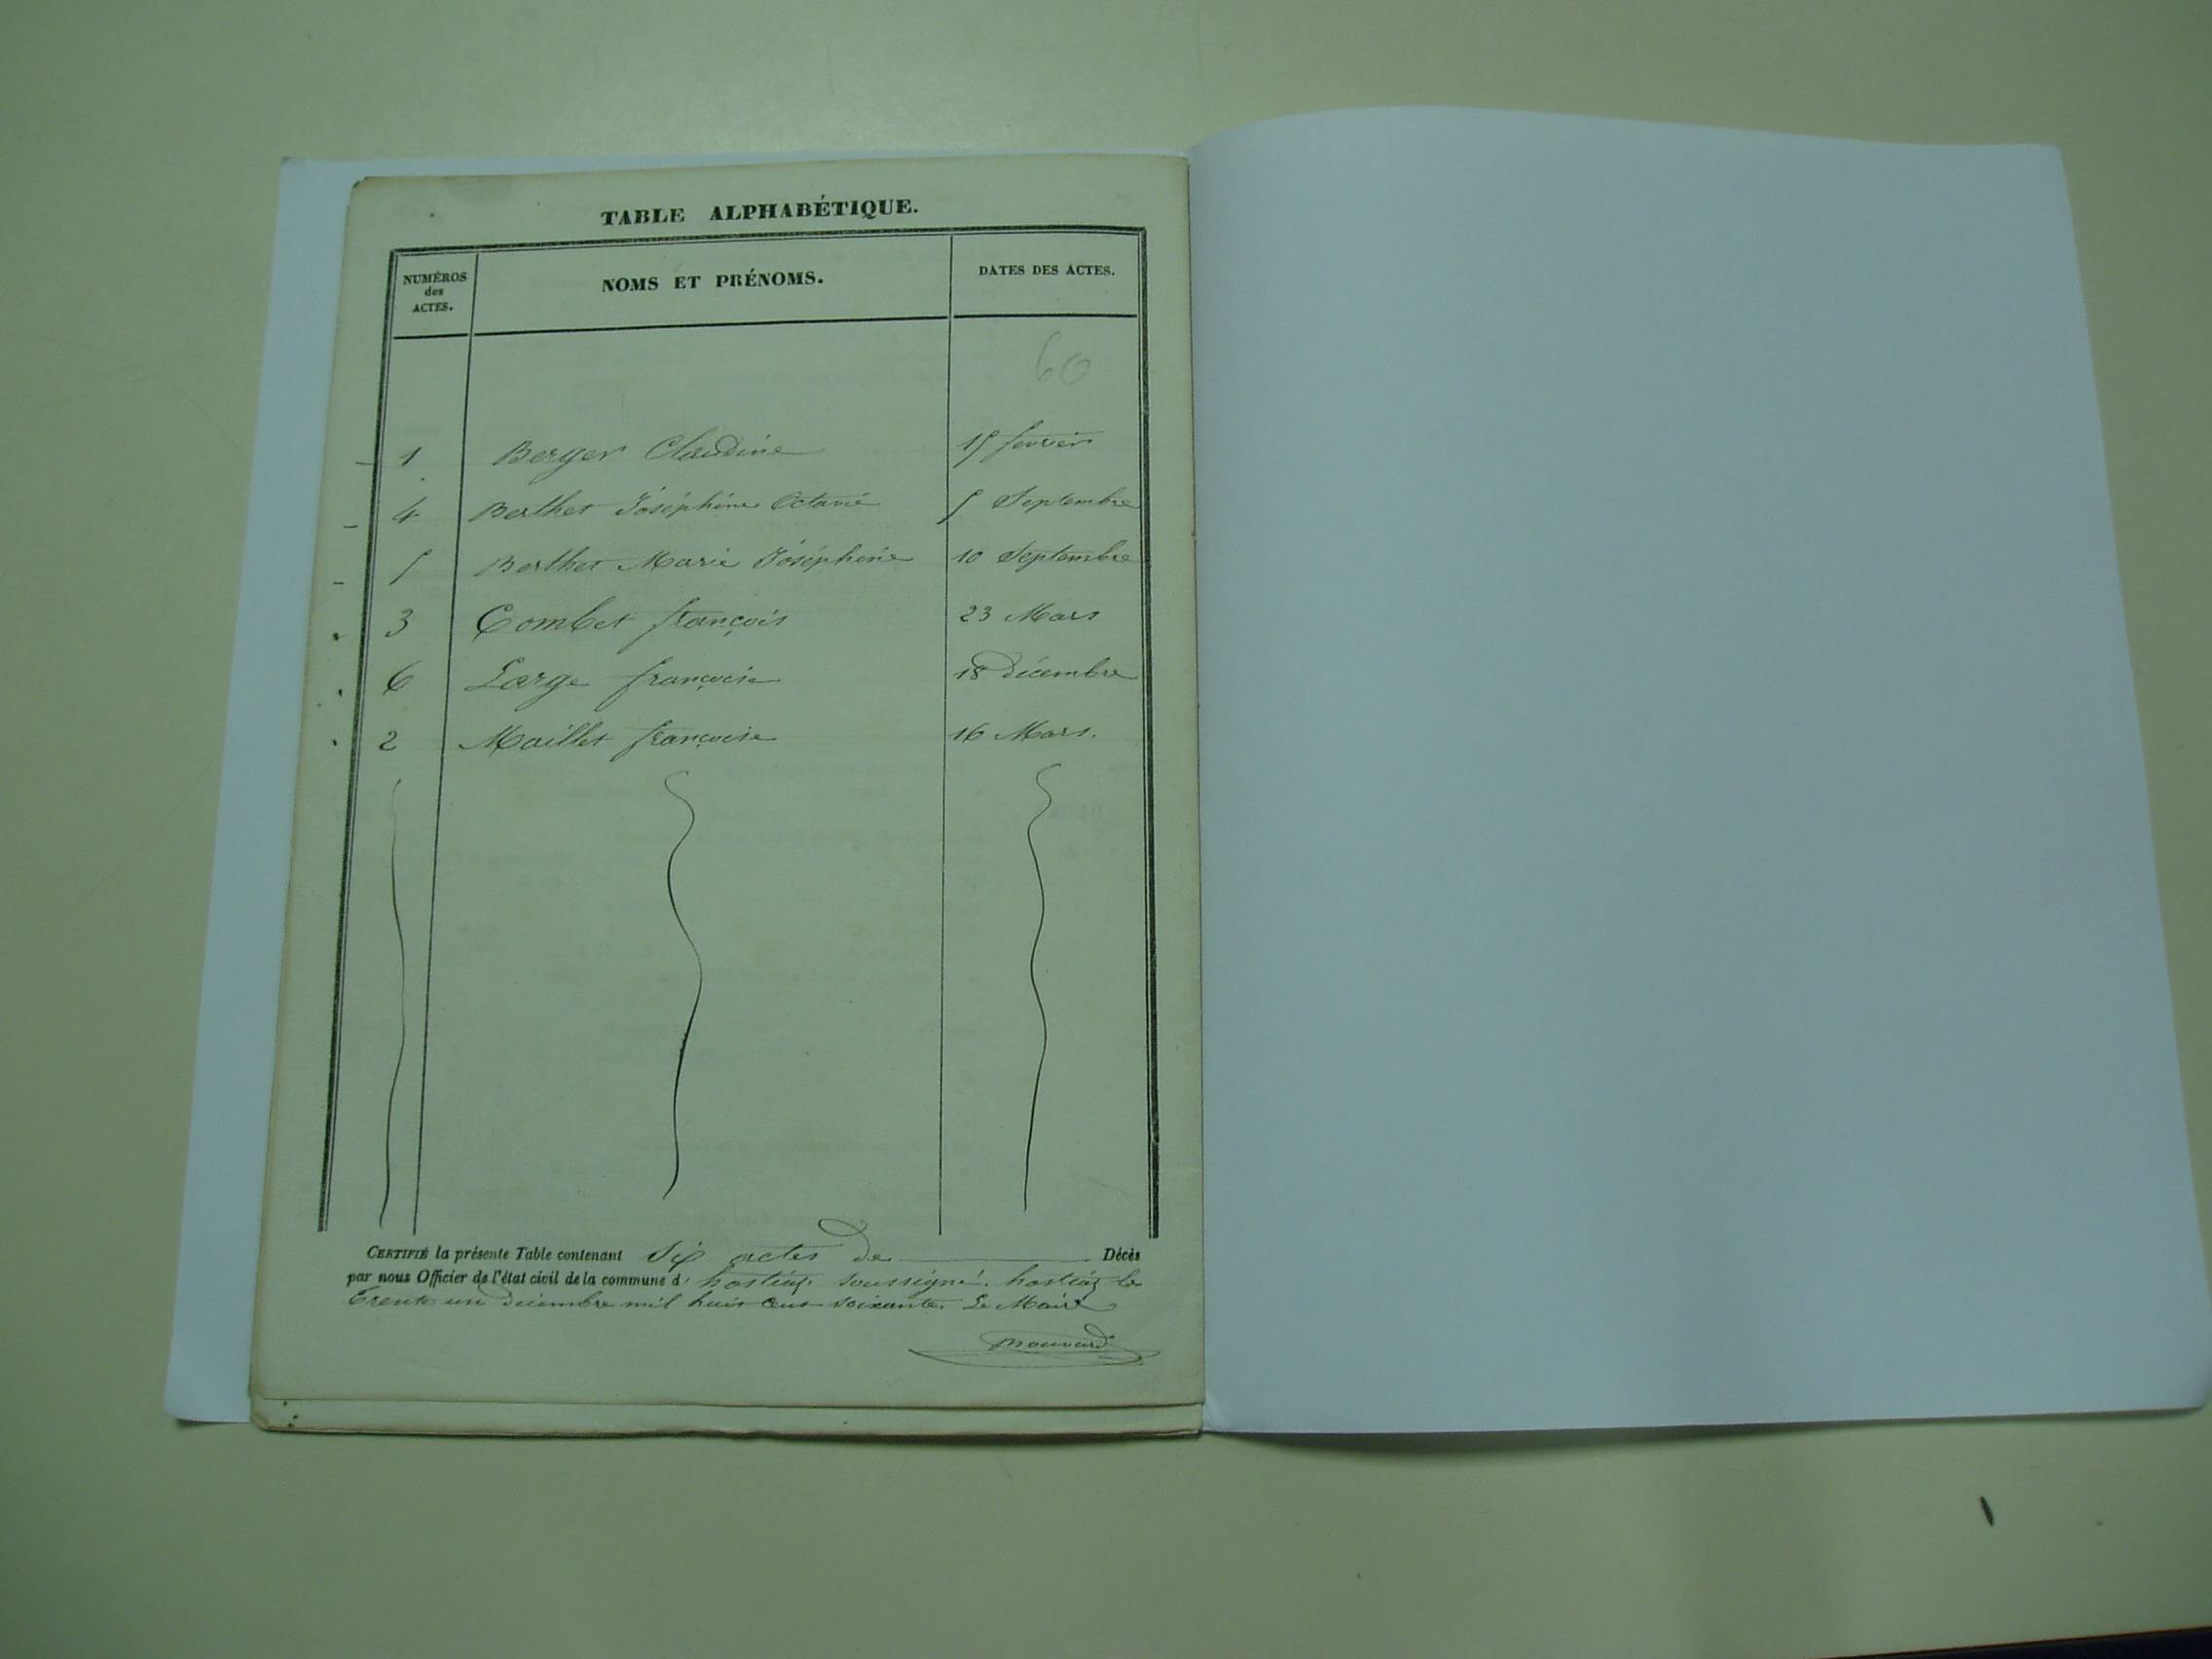 TABLE ALPHABÉTIQUE.
NUMÉROS des ACTES. NOMS ET PRÉNOMS. DATES DES ACTES.
60
1 Berger Claudine 15 fevrier
4 Berthet Joséphine Octavie 5 Septembre
5 Berthet Marie Joséphine 10 Septembre
3 Combet françois 23 Mars
6 Large françoise 18 décembre
2 Maillet françoise 16 Mars.
CERTIFIÉ la présente Table contenant Six actes de Décès
par nous Officier de l'état civil de la commune d' hostiaz soussigné. hostiaz le
Trente un Décembre mil huit cent soixante. Le Maire